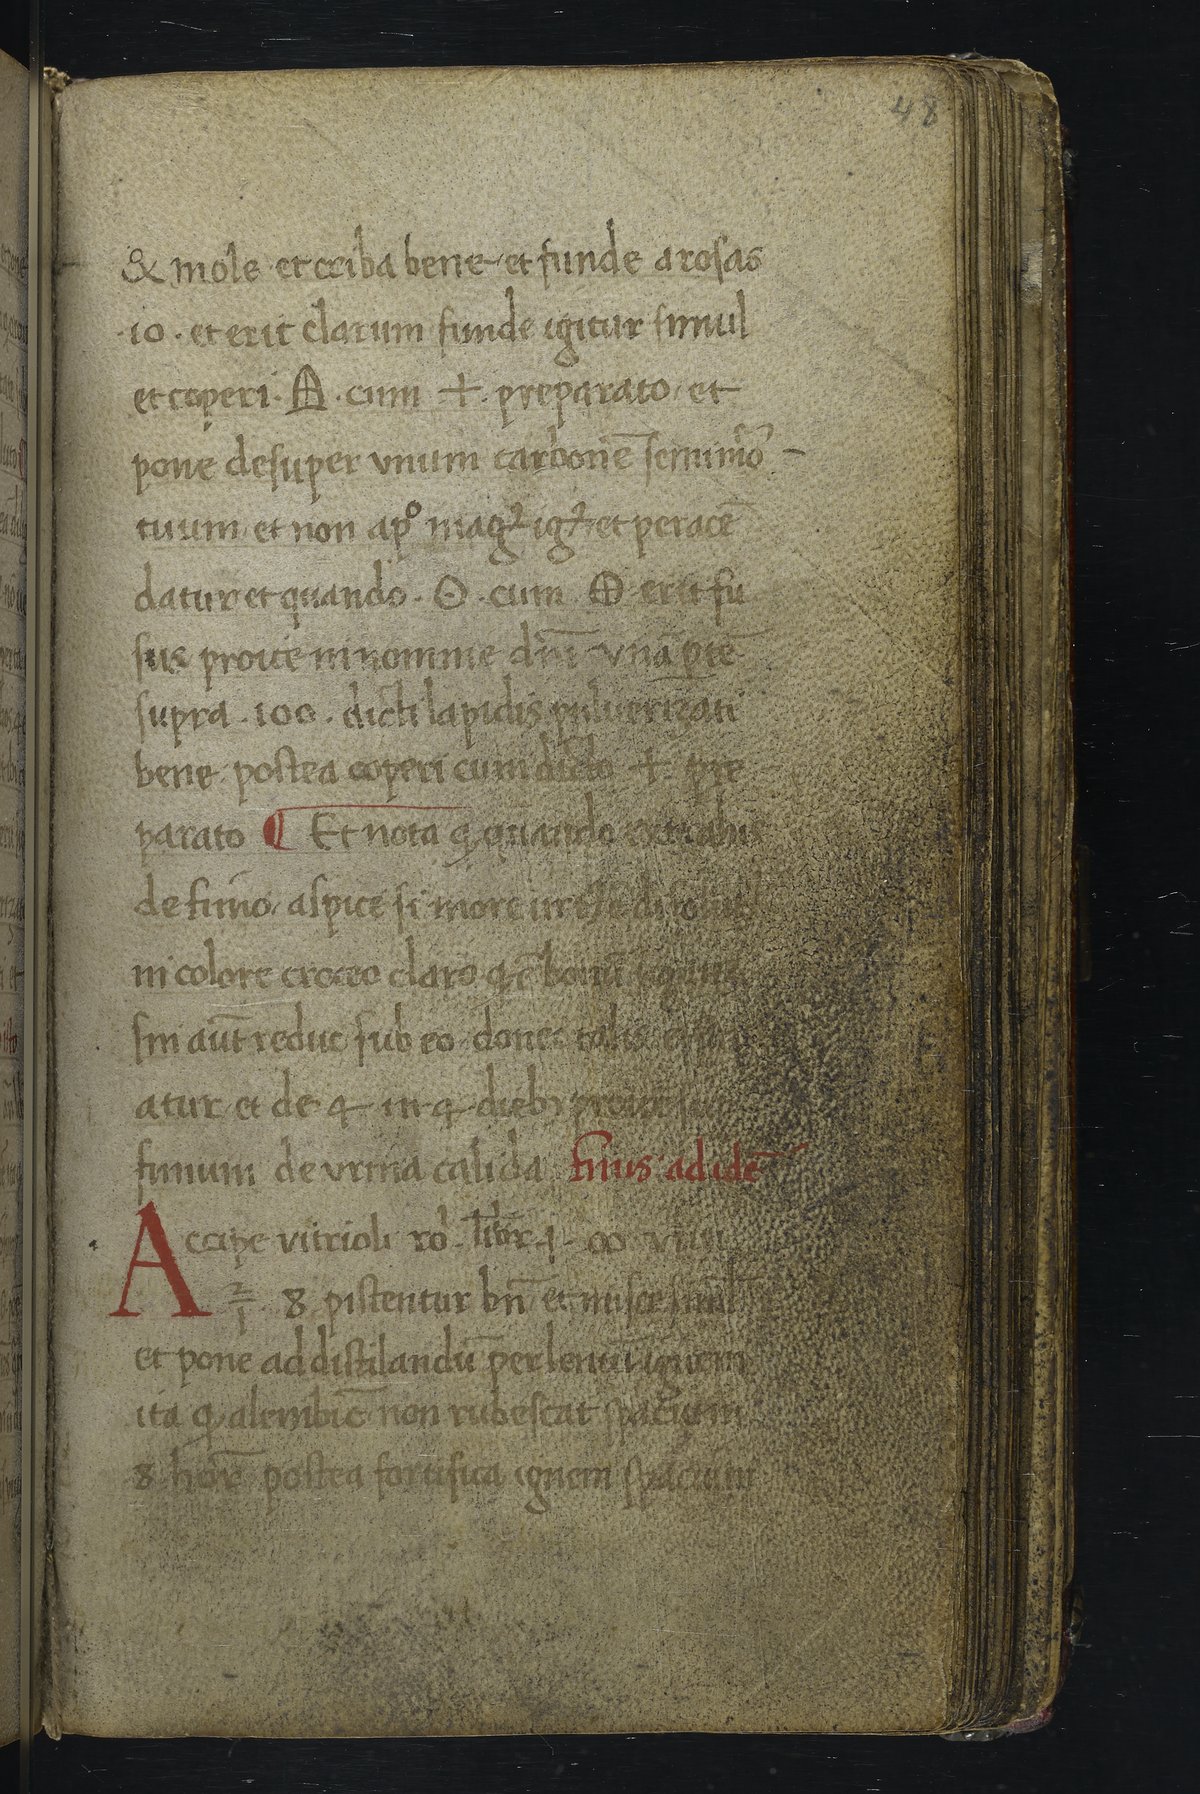 48
& mole et criba bene et funde a rosas
·10· et erit clarum funde igitur simul
et coperi · cum + · preparato et
pone desuper vnum carbonē semimōr
tuum et non apº magꝰ et peracē
datur et quando · ʘ · cum erit fu
sus proice in nomine dn̄i vnā ꝑtē
supra · 100 · dicti lapidis puluerizati
bene postea coperi cum dicto + pre
parato ¶ Et nota ꝙ quando
de fimo aspice si
in colore croceo claro ꝙ ē bonū
sin aūt reduc sub eo donec talis
atur et de 4 in 4 dieb;
fimum de vrina calida finis ad idē
Accipe vitrioli ro
8 pistentur bn̄ et misce simul
et pone ad distilandū per lentū ignem
ita ꝙ alembic̄ non rubescat spacium
8 hor̄ postea fortifica ignem spacium